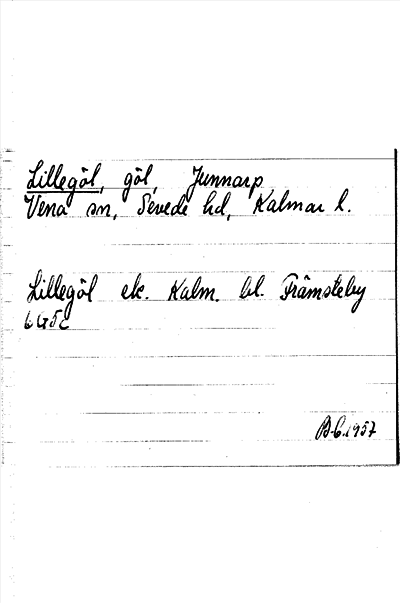 Lillegöl, göl, Junnarp
Vena sn, Sevede hd, Kalmar l.
Lillegöl ek. Kalm. bl. Främsteby
6G5c
B-G.1957